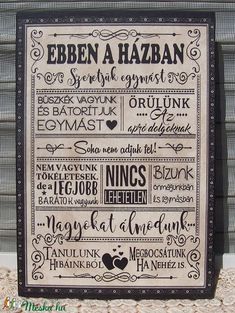 EBBEN A HÁZBAN
Szeretjük egymást
BÜSZKÉK VAGYUNK
ÉS BÁTORÍTJUK
EGYMÁST
ÖRÜLÜNK
Az
apró dolgoknak
Soha nem adjuk fel!
NEM VAGYUNK
TÖKÉLETESEK,
de a LEGJOBB
BARÁTOK vagyunk
NINCS
LEHETETLEN
Bízunk
önmagunkban
és egymásban
Nagyokat álmodunk
TANULUNK
HIBÁINKBÓL
MEGBOCSÁTUNK
HA NEHÉZ IS
Meska.hu